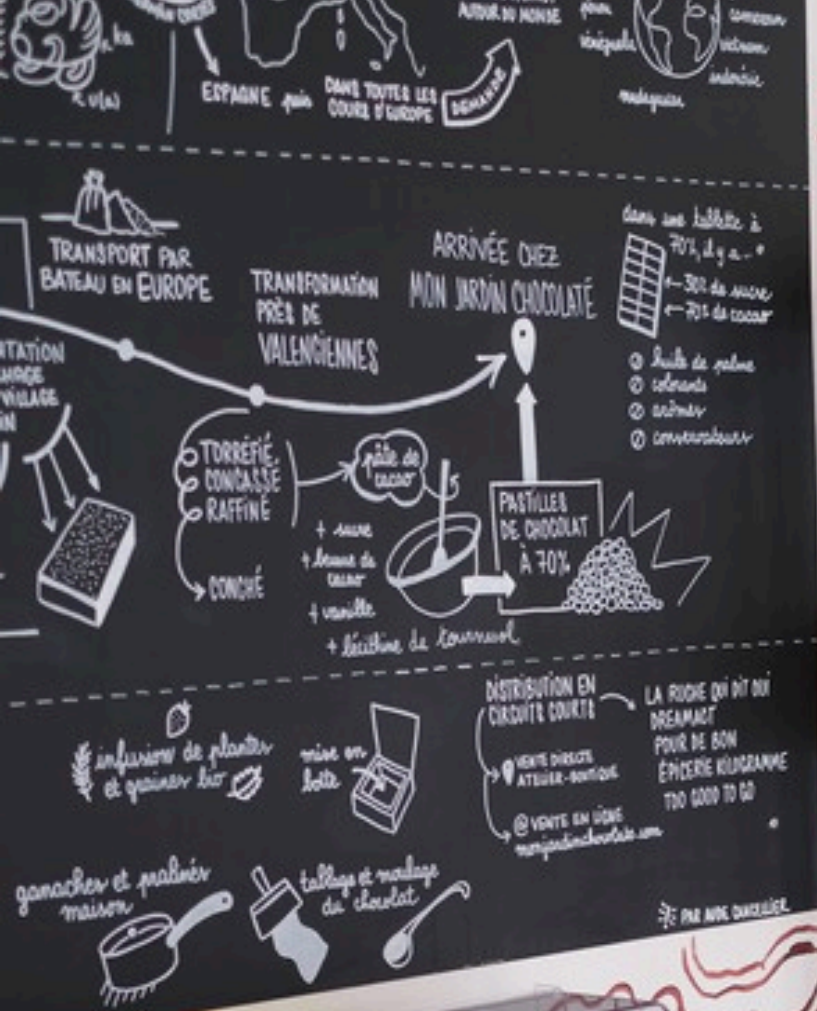 AUTOUR DU MONDE
vénézuela
cameroun
vietnam
indonésie
madagascar
ESPAGNE puis DANS TOUTES LES
COURS D'EUROPE
DEMANDE
TRANSPORT PAR
BATEAU EN EUROPE
TRANSFORMATION
PRÈS DE
VALENCIENNES
ARRIVÉE CHEZ
MON JARDIN CHOCOLATÉ
dans une tablette à
70%, il y a
30% de sucre
70% de cacao
huile de palme
colorants
arômes
conservateurs
VILLAGE
TORRÉFIÉ,
CONCASSÉ
RAFFINÉ
CONCHÉ
pâte de
cacao
+ sucre
+ beurre de
cacao
+ vanille
+ lécithine de tournesol
PASTILLES
DE CHOCOLAT
À 70%
infusion de plantes
et graines bio
mise en
boîte
DISTRIBUTION EN
CIRCUITS COURTS
VENTE DIRECTE
ATELIER-BOUTIQUE
@ VENTE EN LIGNE
monjardinchocolate.com
LA RUCHE QUI DIT OUI
DREAMACT
POUR DE BON
ÉPICERIE KILOGRAMME
TOO GOOD TO GO
ganaches et pralinés
maison
tablage et moulage
du chocolat
PAR AUDE